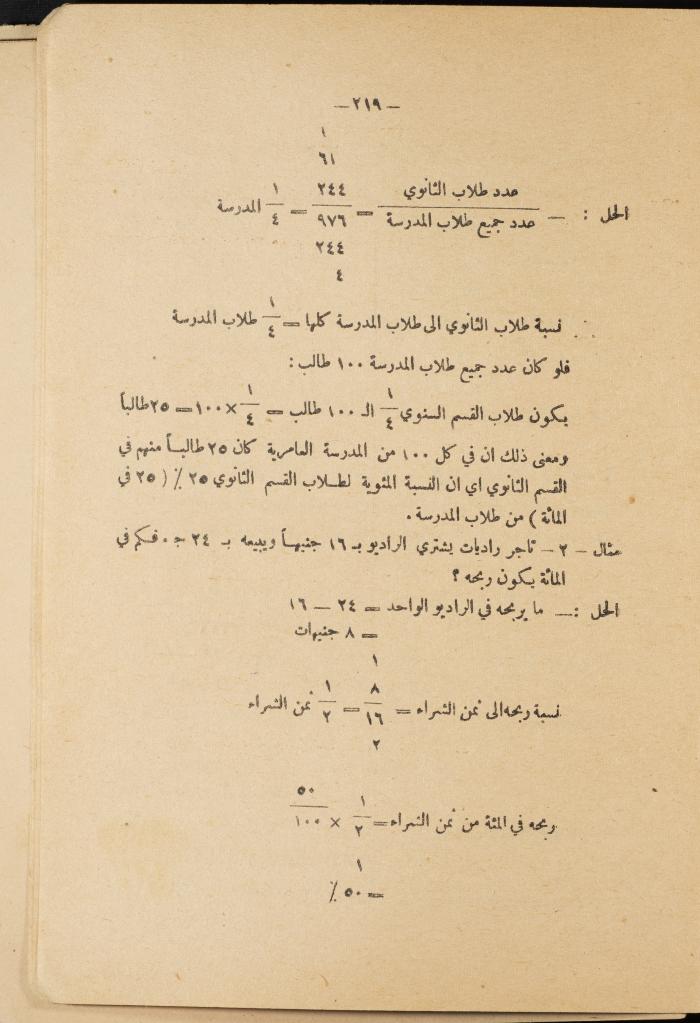 —٢١٩—
١
٦١
الحل : — عدد طلاب الثانوي / عدد جميع طلاب المدرسة = ٢٤٤ / ٩٧٦ = ١ / ٤ المدرسة
٢٤٤
٤
∴ نسبة طلاب الثانوي الى طلاب المدرسة كلها = ١ / ٤ طلاب المدرسة
فلو كان عدد جميع طلاب المدرسة ١٠٠ طالب :
يكون طلاب القسم السنوي ١ / ٤ الـ ١٠٠ طالب = ١ / ٤ × ١٠٠ = ٢٥ طالباً
ومعنى ذلك ان في كل ١٠٠ من المدرسة العامرية كان ٢٥ طالبـاً منهم في
القسم الثانوي اي ان النسبة المئوية لطـلاب القسم الثانوي ٢٥ ٪ ( ٢٥ في
المائة ) من طلاب المدرسة .
مثال — ٢ — تاجر راديات يشتري الراديو بـ ١٦ جنيهـاً ويبيعه بـ ٢٤ ج . فـكم في
المائة يـكون ربحه ؟
الحل :— ما يربحه في الراديو الواحد = ٢٤ — ١٦
= ٨ جنيهات
١
نسبة ربحه الى ثمن الشراء = ٨ / ١٦ = ١ / ٢ ثمن الشراء
٢
٥٠
ربحه في المئة من ثمن الشراء = ١ / ٢ × ١٠٠
١
= ٥٠ ٪